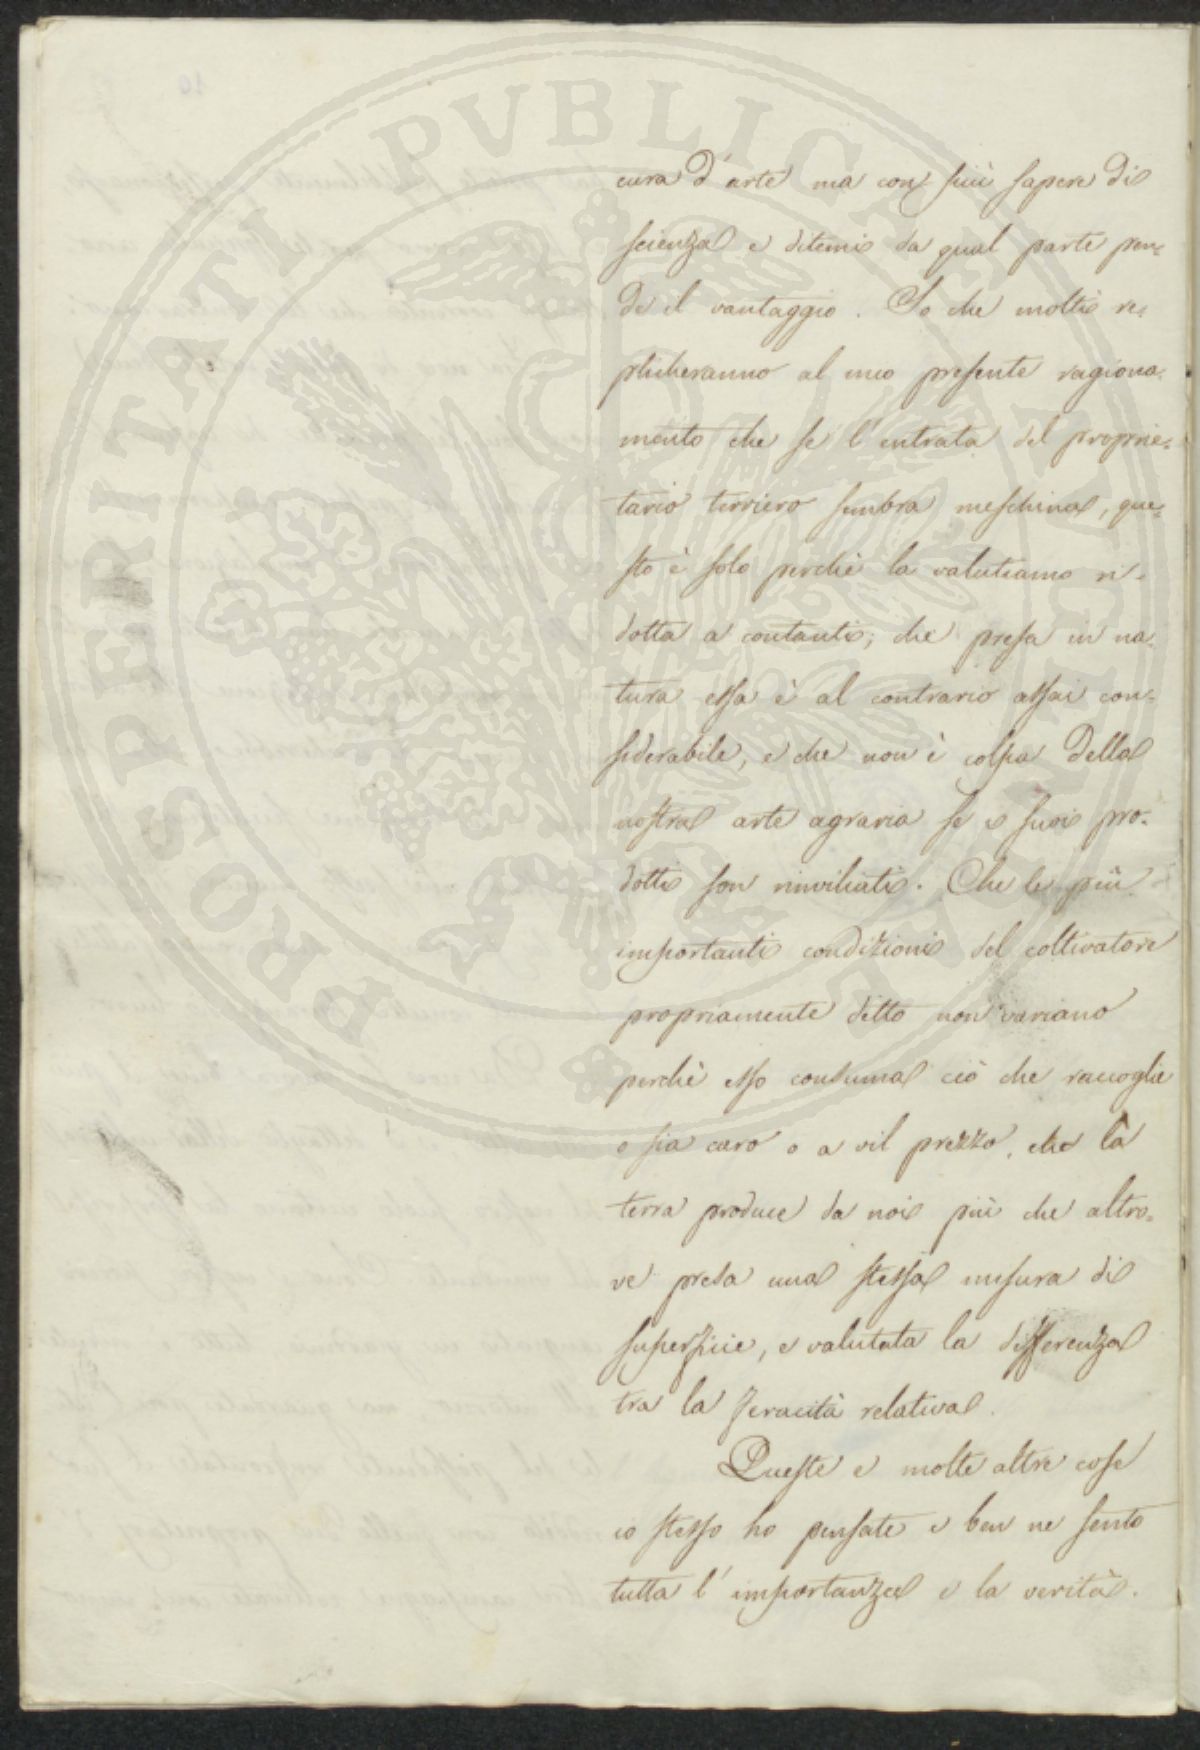 PROSPERITATI PUBLICAE AUGENDAE
cura d'arte ma con più sapere di
scienza e ditemi da qual parte pen=
de il vantaggio. So che molti re=
plicheranno al mio presente ragiona=
mento che se l'entrata del proprie=
tario terriero sembra meschina, que=
sto è solo perchè la valutiamo ri=
dotta a contanti; che presa in na=
tura essa è al contrario assai con=
siderabile, e che non è colpa della
nostra arte agraria se i suoi pro=
dotti son rinviliati. Che le più
importanti condizioni del coltivatore
propriamente detto non variano
perchè esso consuma ciò che raccoglie
o sia caro o a vil prezzo, che la
terra produce da noi più che altro=
ve presa una stessa misura di
superficie, e valutata la differenza
tra la feracità relativa.
Queste e molte altre cose
io stesso ho pensate e ben ne sento
tutta l'importanza e la verità.